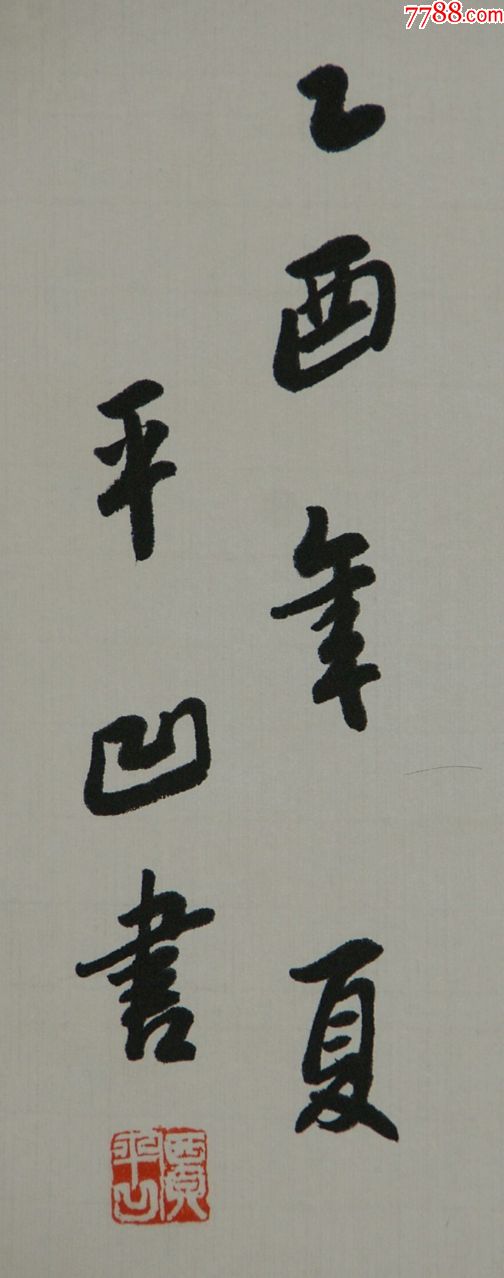 7788.com
乙酉年夏
平凹書
賈平凹